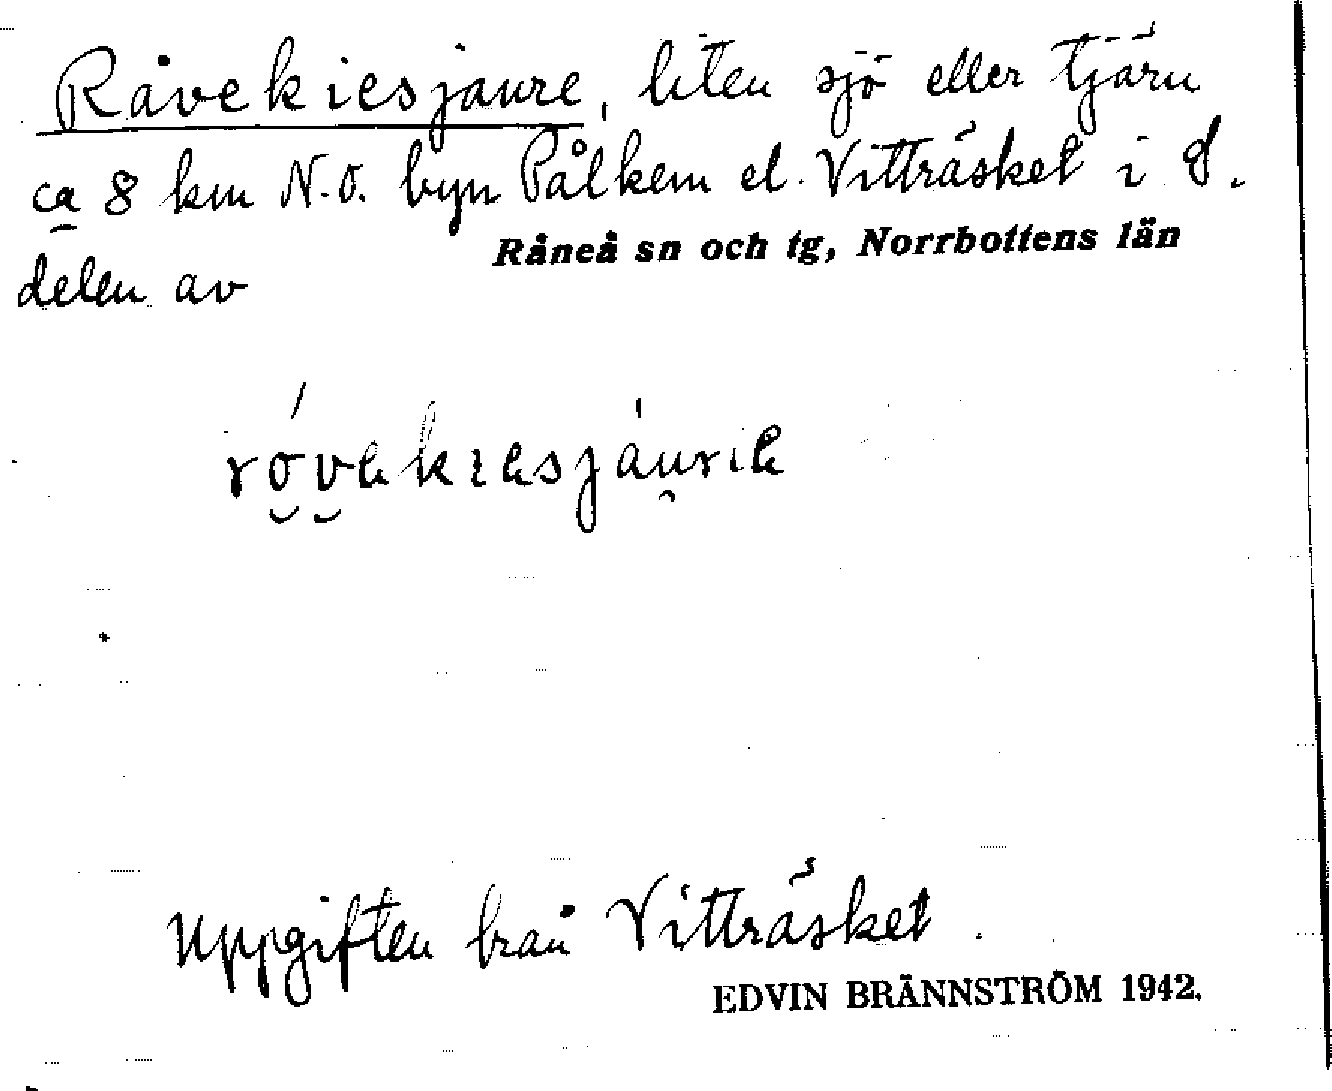 Råvekiesjaure, liten sjö eller tjärn
ca 8 km N.O. byn Pålkem el. Vitträsket i S.
delen av Råneå sn och tg, Norrbottens län
Uppgiften från Vitträsket.
EDVIN BRÄNNSTRÖM 1942.